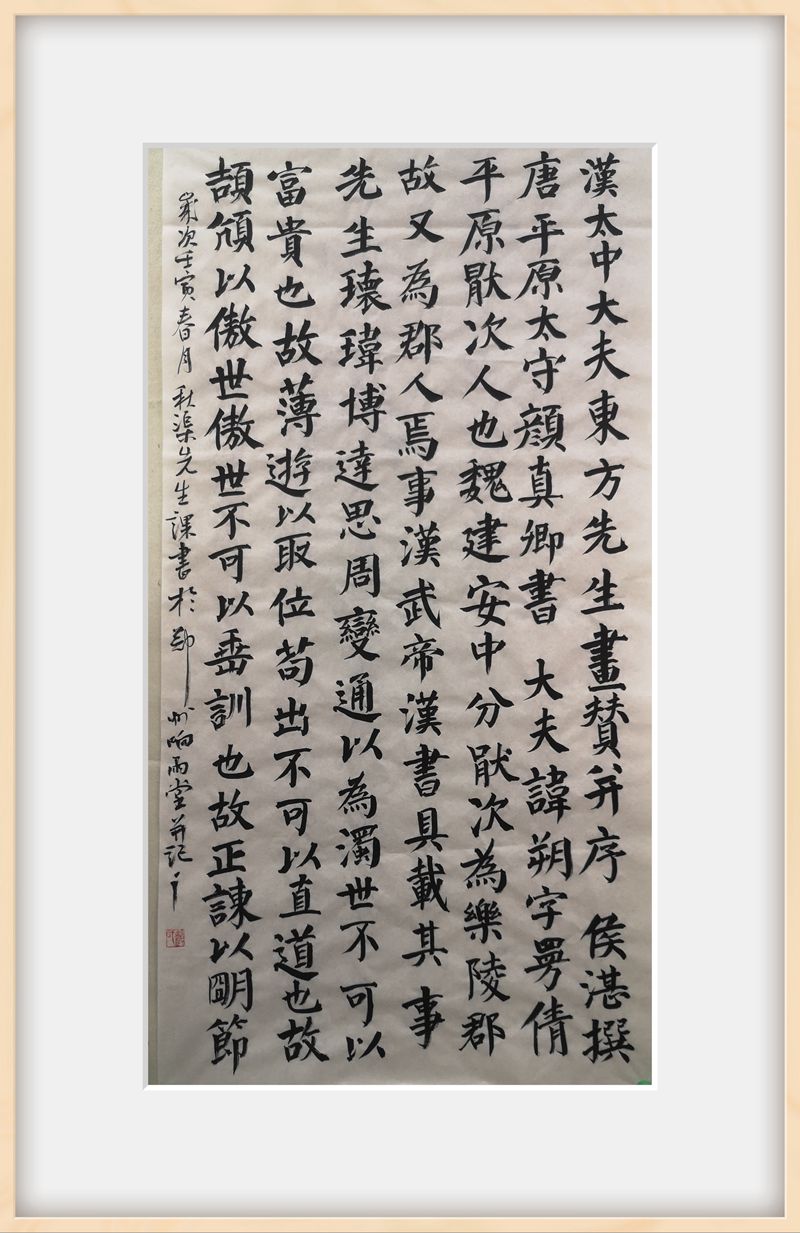 漢太中大夫東方先生畫賛并序 侯湛撰
唐平原太守顏真卿書 大夫諱朔字曼倩
平原猒次人也魏建安中分猒次為樂陵郡
故又為郡人焉事漢武帝漢書具載其事
先生瓌瑋博達思周變通以為濁世不可以
富貴也故薄遊以取位苟出不可以直道也故
頡頏以傲世傲世不可以垂訓也故正諫以明節
歲次壬寅春月秋渠先生課書於鄭州响雨堂并記